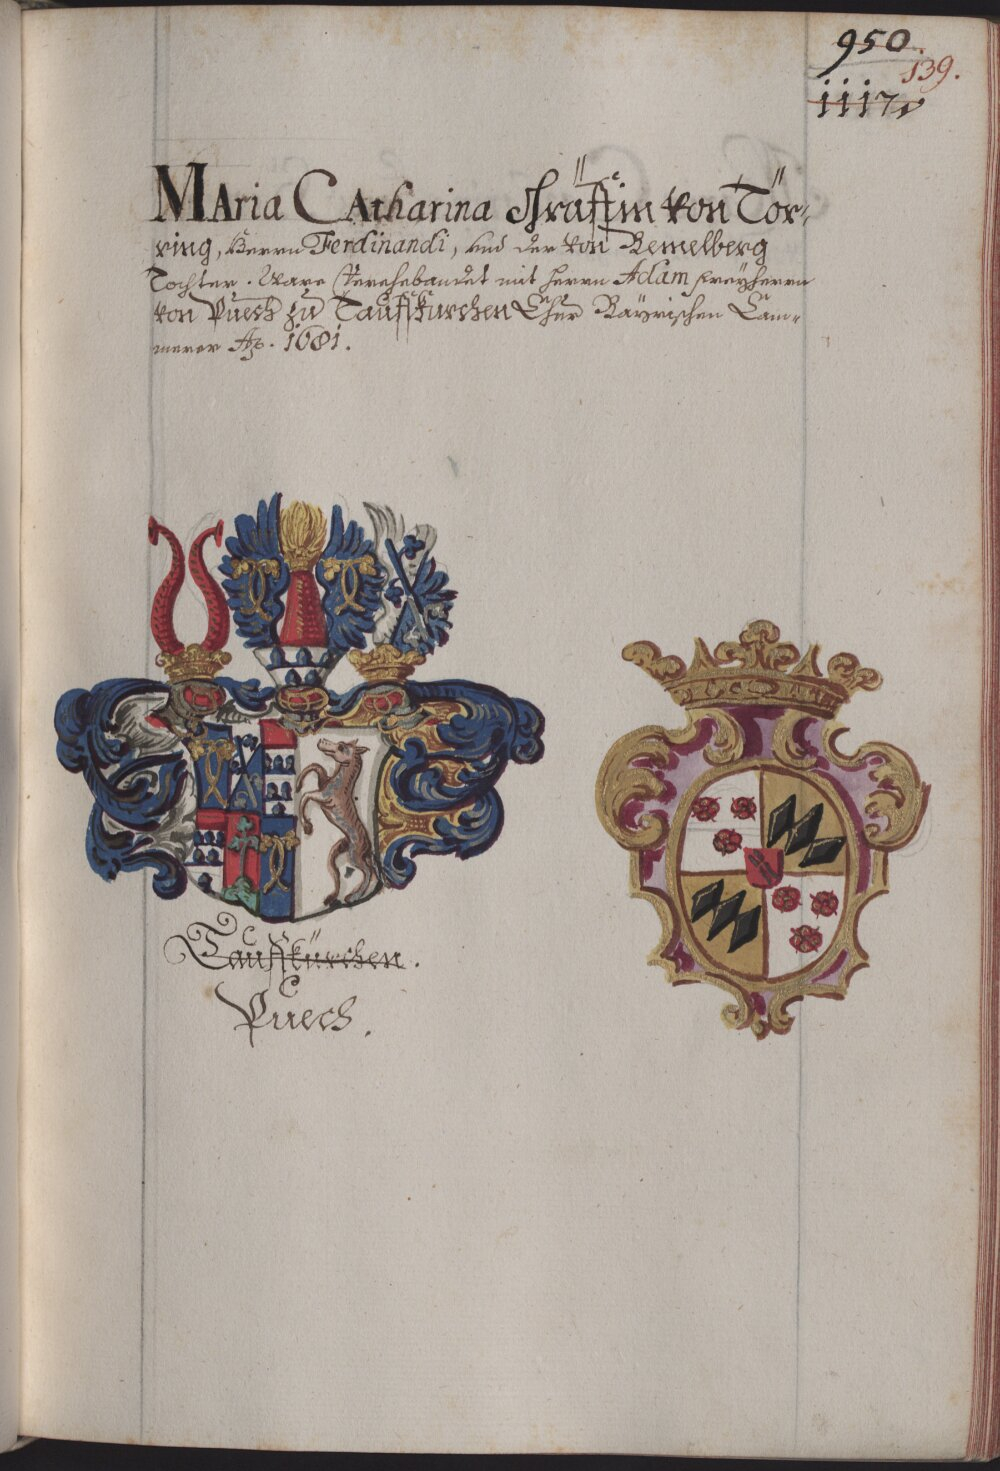 950.
139.
1117
Maria Catharina Gräffin von Tör-
ring, Herrn Ferdinandi, und der von Remelberg
Tochter. Ware Verehebandet mit Herrn Adam Freyherrn
von Puech zu Tauffkürchen Chur Bayrischen Cam-
merer Aõ. 1681.
Tauffkürchen.
Puech.